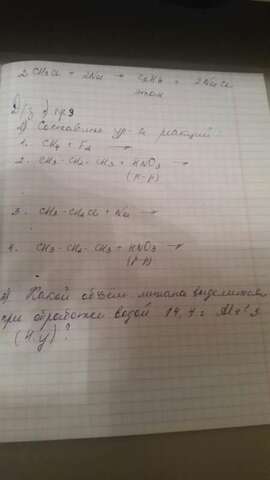 2 CH3Cl + 2Na → C2H6 + 2NaCl
этан
Д/з § стр 9
1) Составить ур-я реакций
1. CH4 + F2 →
2. CH3-CH2-CH3 + HNO3 →
(р-р)
3. CH3-CH2Cl + Na →
4. CH3-CH2-CH3 + HNO3 →
(р-р)
2) Какой объем метана выделится
при обработке водой 14,4 г Al4C3
(н.у)?